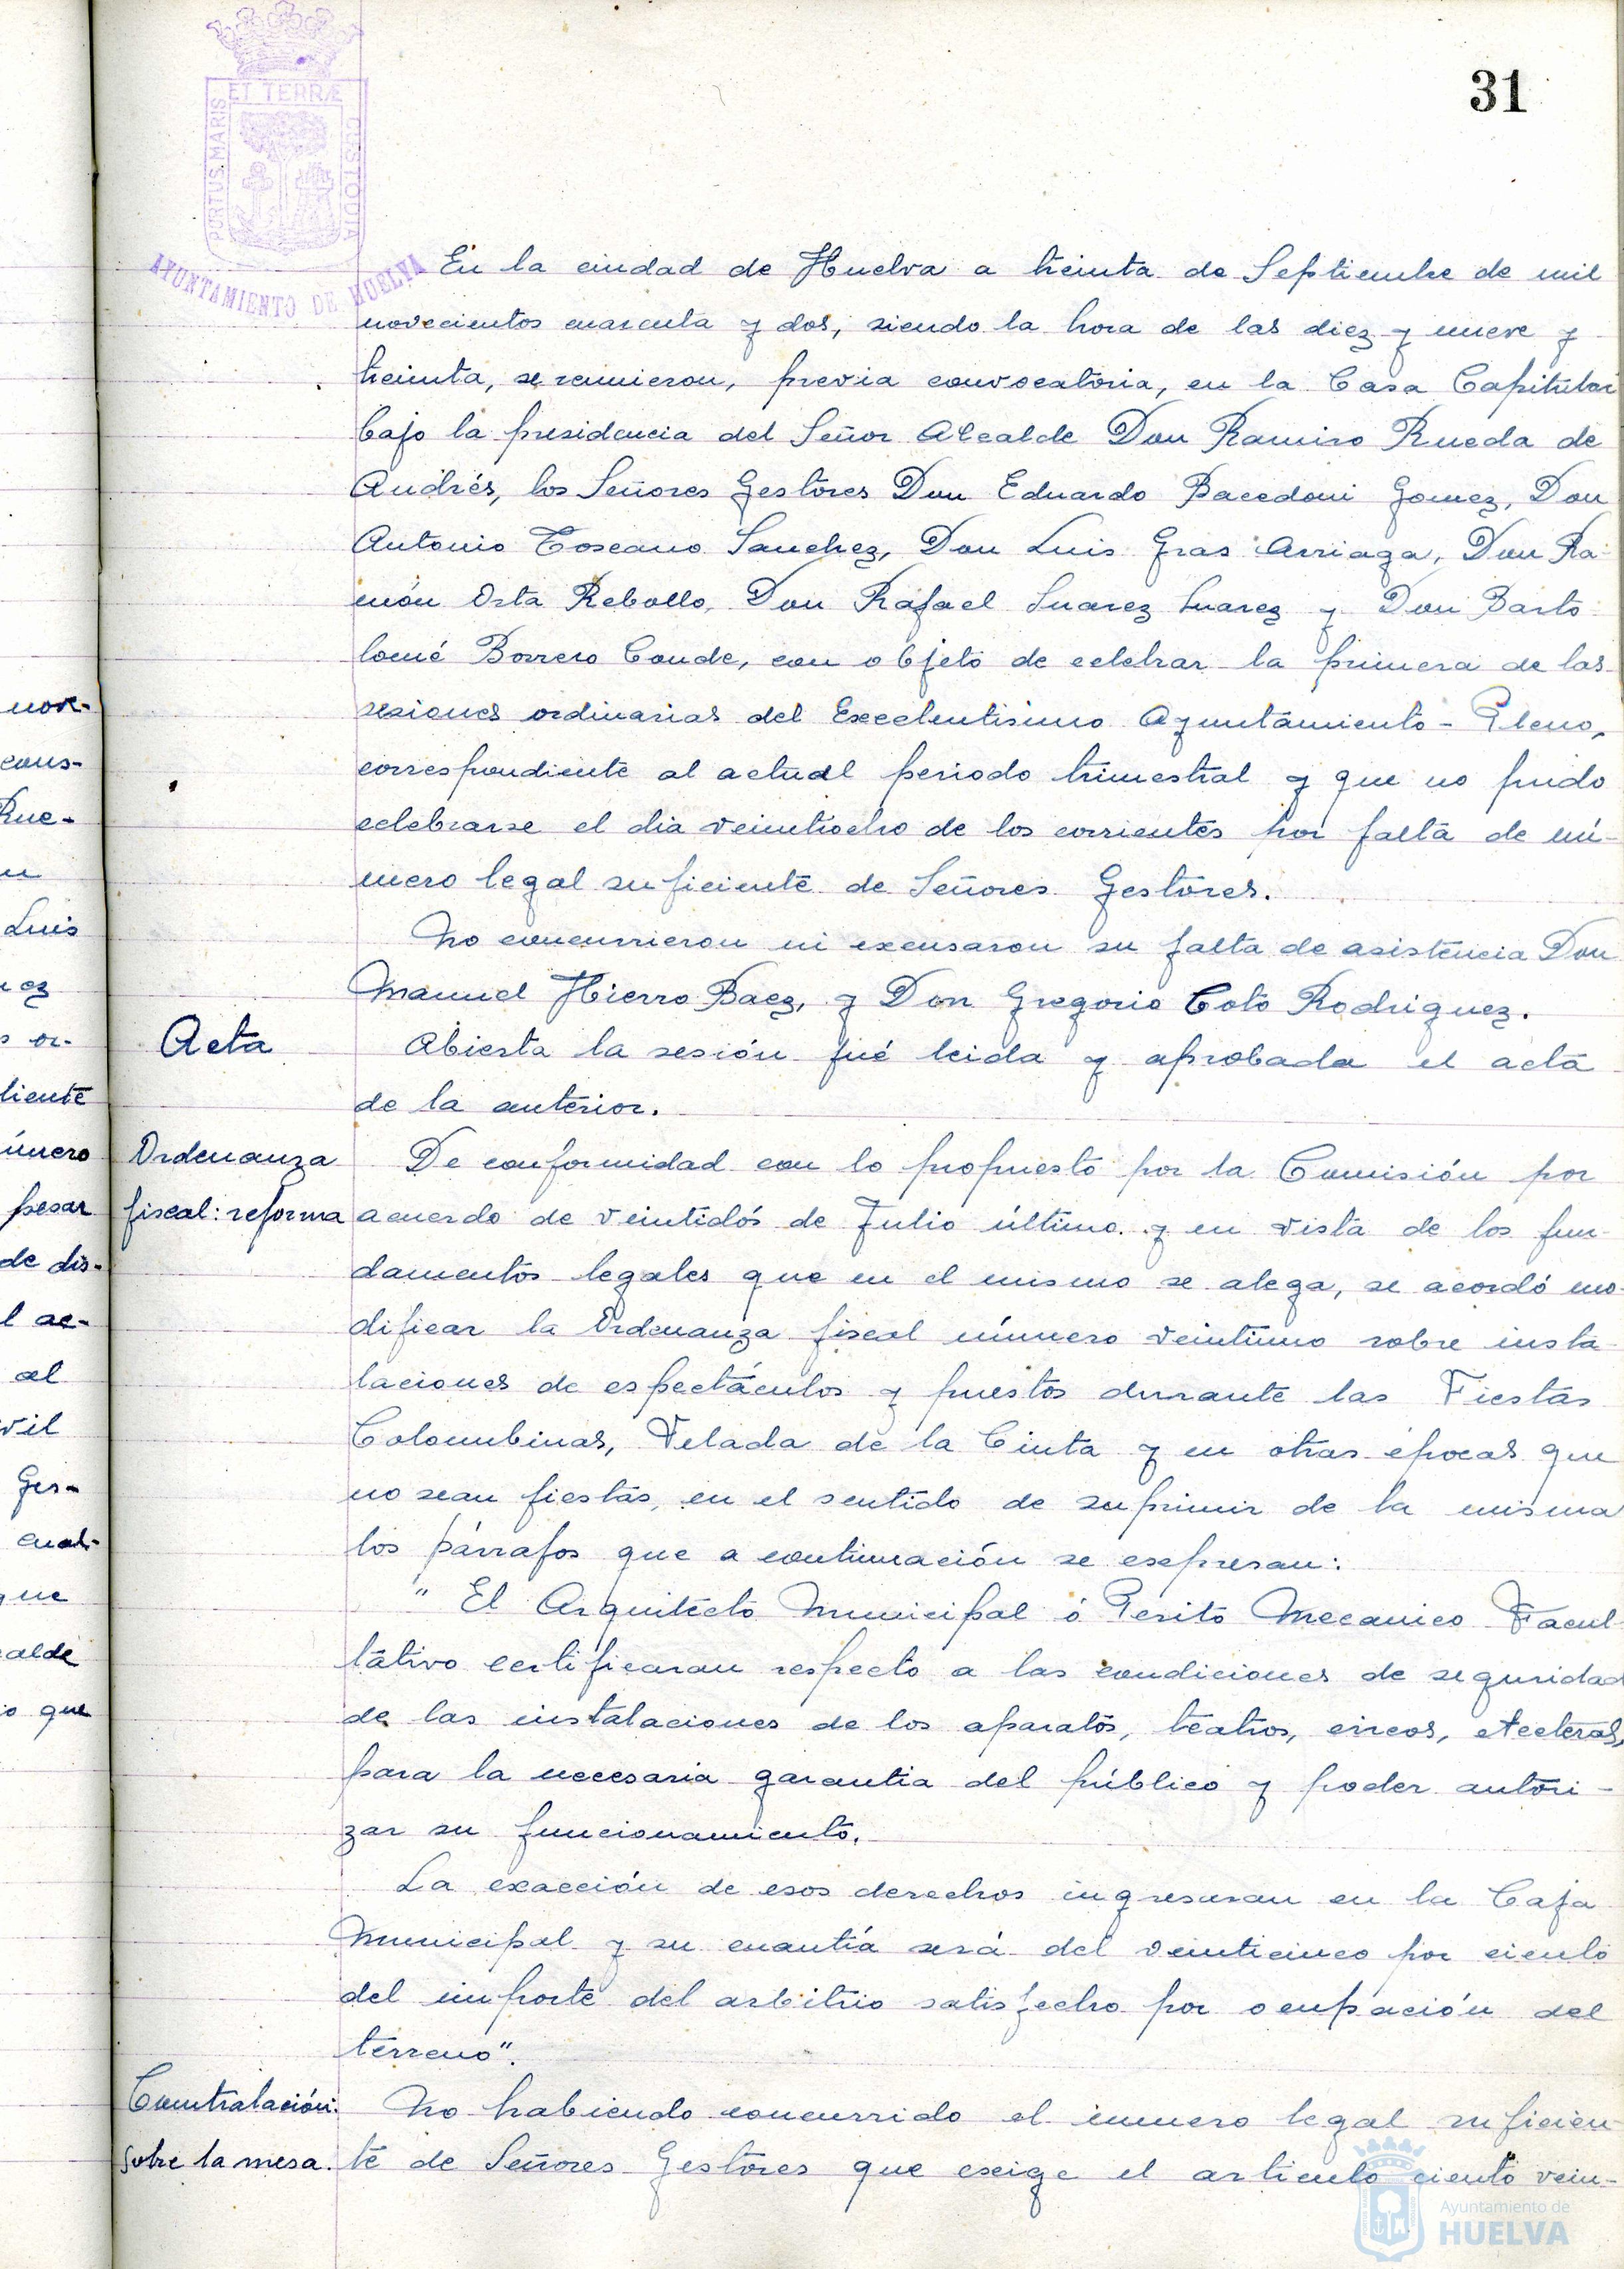 31
ET TERRÆ
PORTUS MARIS
CUSTODIA
AYUNTAMIENTO DE HUELVA
En la ciudad de Huelva a treinta de Septiembre de mil
novecientos cuarenta y dos, siendo la hora de las diez y nueve y
treinta, se reunieron, previa convocatoria, en la Casa Capitular
bajo la presidencia del Señor Alcalde Don Ramiro Rueda de
Andrés, los Señores Gestores Don Eduardo Bacedoni Gomez, Don
Antonio Toscano Sanchez, Don Luis Gras Arriaga, Don Ra-
món Orta Rebollo, Don Rafael Suarez Suarez y Don Barto
lomé Borrero Conde, con objeto de celebrar la primera de las
sesiones ordinarias del Excelentisimo Ayuntamiento-Pleno,
correspondiente al actual periodo trimestral y que no pudo
celebrarse el dia veintiocho de los corrientes por falta de nú-
mero legal suficiente de Señores Gestores.
No concurrieron ni excusaron su falta de asistencia Don
Manuel Hierro Baez, y Don Gregorio Coto Rodriguez.
Acta
Abierta la sesión fué leida y aprobada el acta
de la anterior.
Ordenanza
fiscal: reforma
De conformidad con lo propuesto por la Comisión por
acuerdo de veintidós de Julio último y en vista de los fun-
damentos legales que en el mismo se alega, se acordó mo-
dificar la Ordenanza fiscal número veintiuno sobre insta-
laciones de espectáculos y puestos durante las Fiestas
Colombinas, Velada de la Cinta y en otras épocas que
no sean fiestas, en el sentido de suprimir de la misma
los párrafos que a continuación se exepresan:
" El Arquitecto Municipal ó Perito Mecanico Facul
tativo certificaran respecto a las condiciones de seguridad
de las instalaciones de los aparatos, teatros, circos, etceteras,
para la necesaria garantia del público y poder autori-
zar su funcionamiento.
La exacción de esos derechos ingresaran en la Caja
Municipal y su cuantía será del veinticinco por ciento
del importe del arbitrio satisfecho por ocupación del
terreno".
Contratación:
sobre la mesa.
No habiendo concurrido el numero legal suficien-
te de Señores Gestores que exeige el articulo ciento vein-
nove-
cons-
Rue-
Luis
or-
diente
úmero
pesar
de dis-
l ac-
al
vil
Ges-
cual-
que
calde
o que
Ayuntamiento de
HUELVA